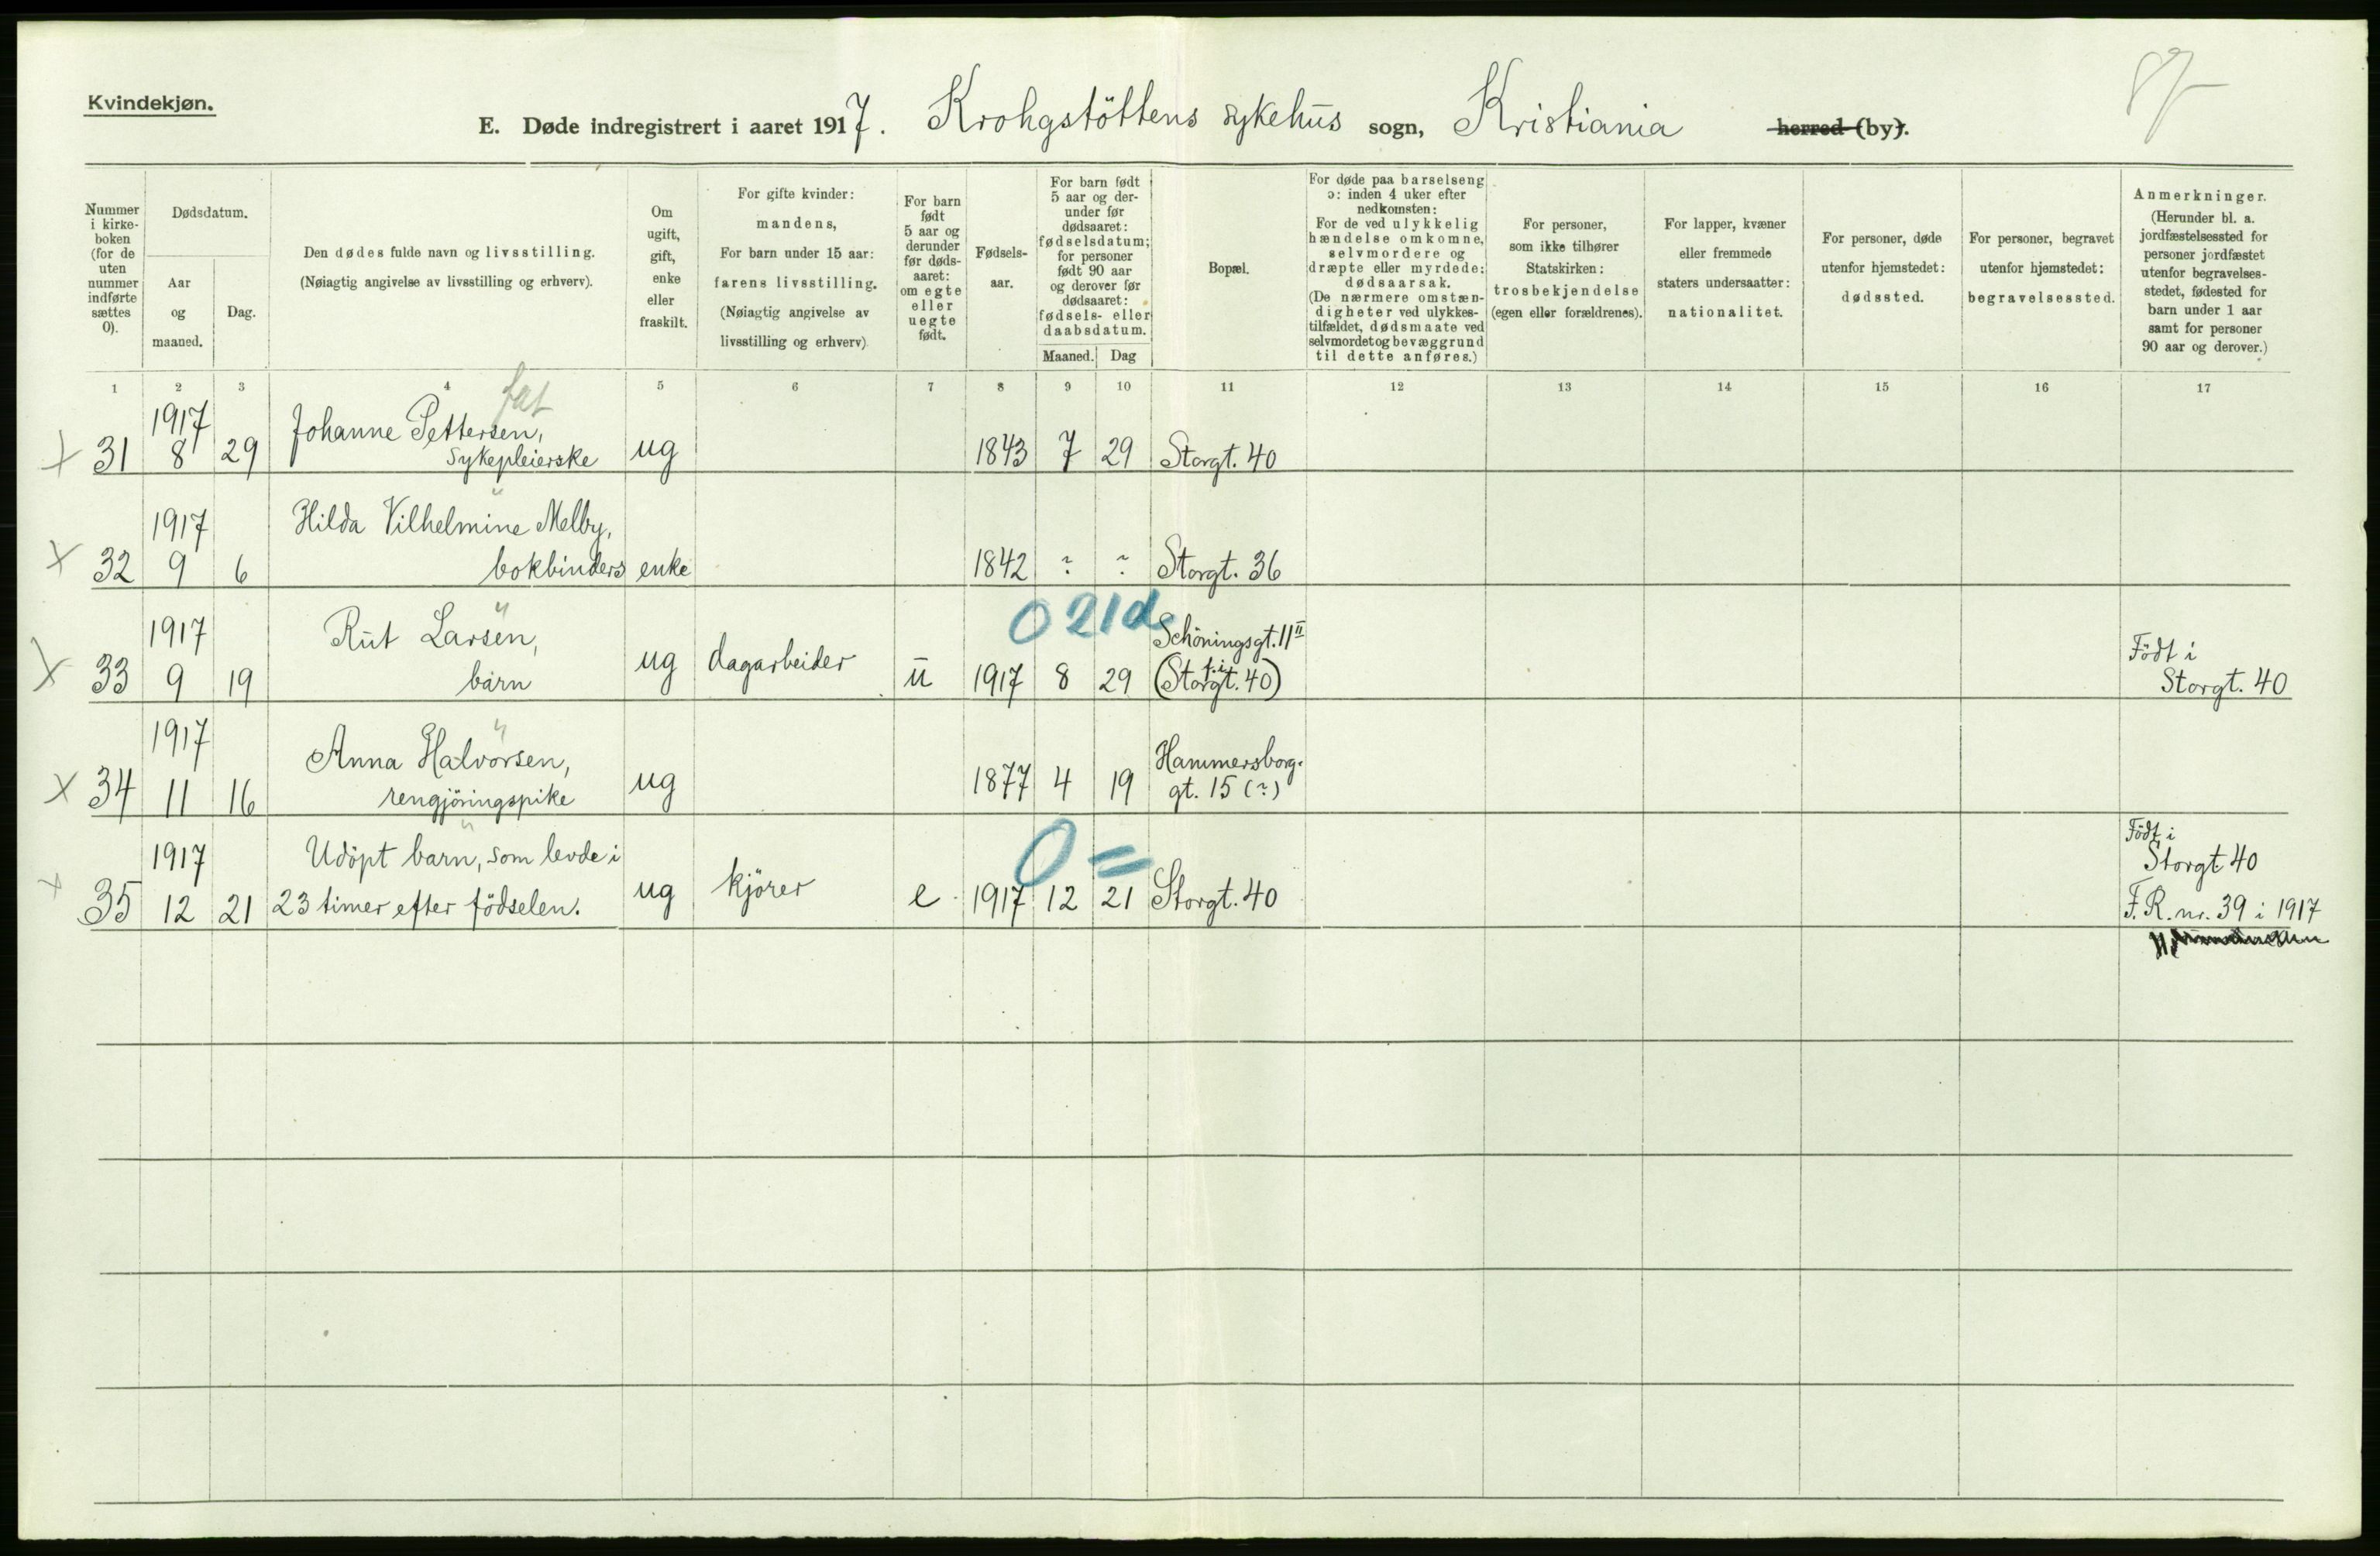 Kvindekjøn.
87
E. Døde indregistrert i aaret 1917. Krohgstöttens sykehus sogn, Kristiania herred (by).
Nummer i kirke-boken (for de uten nummer indførte sættes 0).
Dødsdatum.
Aar og maaned.
Dag.
Den dødes fulde navn og livsstilling.
(Nøiagtig angivelse av livsstilling og erhverv).
Om ugift, gift, enke eller fraskilt.
For gifte kvinder:
mandens,
For barn under 15 aar:
farens livsstilling.
(Nøiagtig angivelse av
livsstilling og erhverv)
For barn født 5 aar og derunder før døds-aaret: om egte eller uegte født.
Fødsels-aar.
For barn født 5 aar og der-under før dødsaaret: fødselsdatum; for personer født 90 aar og derover før dødsaaret: fødsels- eller daabsdatum.
Maaned.
Dag
Bopæl.
For døde paa barselseng
ɔ: inden 4 uker efter
nedkomsten:
For de ved ulykkelig
hændelse omkomne,
selvmordere og
dræpte eller myrdede:
dødsaarsak.
(De nærmere omstæn-
digheter ved ulykkes-
tilfældet, dødsmaate ved
selvmordet og bevæggrund
til dette anføres.)
For personer,
som ikke tilhører
Statskirken:
trosbekjendelse
(egen eller forældrenes).
For lapper, kvæner
eller fremmede
staters undersaatter:
nationalitet.
For personer, døde
utenfor hjemstedet:
dødssted.
For personer, begravet
utenfor hjemstedet:
begravelsessted.
Anmerkninger.
(Herunder bl. a.
jordfæstelsessted for
personer jordfæstet
utenfor begravelses-
stedet, fødested for
barn under 1 aar
samt for personer
90 aar og derover.)
1 2 3 4 5 6 7 8 9 10 11 12 13 14 15 16 17
fat
1917 Johanne Pettersen,
x 31 8 29 Sykepleierske ug 1843 7 29 Storgt. 40
1917 Hilda Vilhelmine Melby,
x 32 9 6 bokbinders enke 1842 ? ? Storgt. 36
0 21d
1917 Rut Larsen, Schöningsgt. 11 II Födt i
x 33 9 19 barn ug dagarbeider u 1917 8 29 (Storgt. 40) Storgt. 40
1917 Anna Halvorsen, Hammersborg-
x 34 11 16 rengjöringspike ug 1877 4 19 gt. 15 (?)
0 =
1917 Udöpt barn, som levde i Födt i
Storgt 40
x 35 12 21 23 timer efter födselen. ug kjörer e 1917 12 21 Storgt. 40 F.R. nr. 39 i 1917